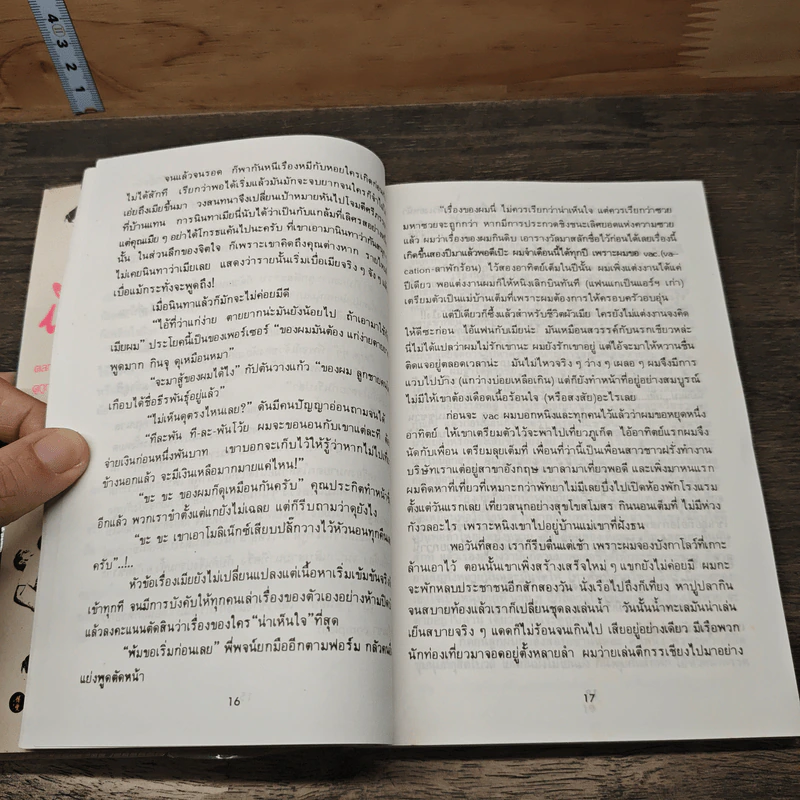 จนแล้วจนรอด ก็พากันหนีเรื่องหมีกับหอยใครเกิดก่อน
ไม่ได้สักที เรียกว่าพอได้เริ่มแล้วมันมักจะจบยากจนใครก็
เอ่ยถึงเมียขึ้นมา วงสนทนาจึงเปลี่ยนเป้าหมายหันไปโจมตี
ที่บ้านแทน การนินทาเมียนี่นับได้ว่าเป็นกับแกล้มที่เลิศรสอย่าง
แต่คุณเมีย ๆ อย่าได้โกรธแค้นไปนะครับ ที่เขาเอามานินทากัน
นั้น ในส่วนลึกของจิตใจ ก็เพราะเขาคิดถึงคุณต่างหาก
ไม่เคยนินทาว่าเมียเลย แสดงว่ารายนั้นเริ่มเบื่อเมียจริง ๆ จัง ๆ
เบื่อแม้กระทั่งจะพูดถึง!
เมื่อนินทาแล้วก็มักจะไม่ค่อยมีดี
“ไอ้ที่ว่าแก่ง่าย ตายยากน่ะมันยังน้อยไป ถ้าเอามาใช้
เมียผม” ประโยคนี้เป็นของเพอร์เซอร์ “ของผมมันต้อง แก่ง่ายตายยาก
พูดมาก กินจุ ดุเหมือนหมา”
“จะมาสู้ของผมได้ไง” กัปตันวางแก้ว “ของผม ลูกชาย
เกือบได้ชื่อธีรพันธุ์อยู่แล้ว”
“ไม่เห็นดุตรงไหนเลย?” ดันมีคนปัญญาอ่อนถามจนได้
“ทีละพัน ที-ละ-พันโว้ย ผมจะขอนอนกับเขาแต่ละที
จ่ายเงินก่อนหนึ่งพันบาท เขาบอกจะเก็บไว้ให้รู้ว่าหากไม่ไป
ข้างนอกแล้ว จะมีเงินเหลือมากมายแค่ไหน!”
“ขะ ขะ ของผมก็ดุเหมือนกันครับ” คุณประกิตทำหน้า
อีกแล้ว พวกเราขำตั้งแต่แกยังไม่เฉลย แต่ก็รีบถามว่าดุยังไง
“ขะ ขะ เขาเอาโมลิเน็กซ์เสียบปลั๊กวางไว้หัวนอนทุกคืน
ครับ”..!..
หัวข้อเรื่องเมียยังไม่เปลี่ยนแปลงแต่เนื้อหาเริ่มเข้มข้น
เข้าทุกที จนมีการบังคับให้ทุกคนเล่าเรื่องของตัวเองอย่างห้าม
แล้วลงคะแนนตัดสินว่าเรื่องของใคร “น่าเห็นใจ” ที่สุด
“พ้มขอเริ่มก่อนเลย” พี่พจน์ยกมืออีกตามฟอร์ม กลัว
แย่งพูดตัดหน้า
16
“เรื่องของผมนี่ ไม่ควรเรียกว่าน่าเห็นใจ แต่ควรเรียกว่าซวย
มหาซวยจะถูกกว่า หากมีการประกวดชิงชนะเลิศยอดแห่งความซวย
แล้ว ผมว่าเรื่องของผมกินดิบ เอารางวัลมาสลักชื่อไว้ก่อนได้เลยเรื่องนี้
เกิดขึ้นสองปีมาแล้วพอดีเป๊ะ ผมจำเดือนนี้ได้ทุกปี เพราะผมขอ vac (va-
cation-ลาพักร้อน) ไว้สองอาทิตย์เต็มในปีนั้น ผมเพิ่งแต่งงานได้แค่
ปีเดียว พอแต่งงานผมก็ให้หนิงเลิกบินทันที (แฟนแกเป็นแอร์ฯ เก่า)
เตรียมตัวเป็นแม่บ้านเต็มที่เพราะผมต้องการให้ครอบครัวอบอุ่น
แต่ปีเดียวก็ซึ้งแล้วสำหรับชีวิตผัวเมีย ใครยังไม่แต่งงานจงคิด
ให้ดีซะก่อน ไอ้แฟนกับเมียน่ะ มันเหมือนสวรรค์กับนรกเชียวหล่ะ
นี่ไม่ได้แปลว่าผมไม่รักเขานะ ผมยังรักเขาอยู่ แต่ไอ้จะมาให้หวานชื่น
ติดแจอยู่ตลอดเวลาน่ะ มันไม่ไหวจริง ๆ ว่าง ๆ เผลอ ๆ ผมจึงมีการ
แวบไปบ้าง (แกว่างบ่อยเหลือเกิน) แต่ก็ยังทำหน้าที่อยู่อย่างสมบูรณ์
ไม่มีให้เขาต้องเดือดเนื้อร้อนใจ (หรือสงสัย) อะไรเลย
ก่อนจะ vac ผมบอกหนิงและทุกคนไว้แล้วว่าผมขอหยุดหนึ่ง
อาทิตย์ ให้เขาเตรียมตัวไว้จะพาไปเที่ยวภูเก็ต ไอ้อาทิตย์แรกผมจึง
นัดกับเพื่อน เตรียมลุยเต็มที่ เพื่อนที่ว่านี้เป็นเพื่อนสาวชาวฝรั่งทำงาน
บริษัทเราแต่อยู่สาขาอังกฤษ เขาลามาเที่ยวพอดี และเพิ่งมาหนแรก
ผมคิดหาที่เที่ยวที่เหมาะกว่าพัทยาไม่มีเลยบึ่งไปเปิดห้องพักโรงแรม
ตั้งแต่วันแรกเลย เที่ยวสนุกอย่างสุขโขสโมสร กินนอนเต็มที่ ไม่มีห่วง
กังวลอะไร เพราะหนิงเขาไปอยู่บ้านแม่เขาที่ฝั่งธน
พอวันที่สอง เราก็รีบตื่นแต่เช้า เพราะผมจองบังกาโลว์ที่เกาะ
ล้านเอาไว้ ตอนนั้นเขาเพิ่งสร้างเสร็จใหม่ ๆ แขกยังไม่ค่อยมี ผมกะ
จะพักหลบประชาชนอีกสักสองวัน นั่งเรือไปถึงก็เที่ยง หาปูปลากิน
จนสบายท้องแล้วเราก็เปลี่ยนชุดลงเล่นน้ำ วันนั้นน้ำทะเลมันน่าเล่น
เย็นสบายจริง ๆ แดดก็ไม่ร้อนจนเกินไป เสียอยู่อย่างเดียว มีเรือพวก
นักท่องเที่ยวมาจอดอยู่ตั้งหลายลำ ผมว่ายเล่นตีกรรเชียงไปมาอย่าง
17
4
3
2
1